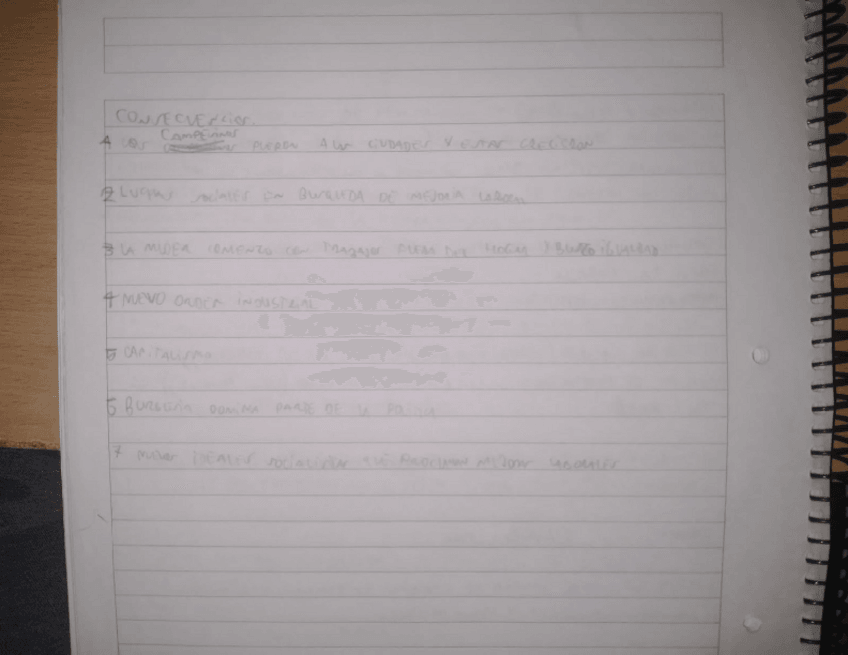 CONSECUENCIAS
CAMPESINOS
1 LOS FUERON A LAS CIUDADES Y ESTAS CRECIERON
2 LUCHAS SOCIALES EN BUSQUEDA DE MEJORIA LABORAL
3 LA MUJER COMENZO CON TRABAJOS FUERA DEL HOGAR IGUALDAD
4 NUEVO ORDEN INDUSTRIAL
5 CAPITALISMO
6 BURGUESIA DOMINA PARTE DE LA
7 IDEALES SOCIALISTAS QUE MEJORAS LABORALES